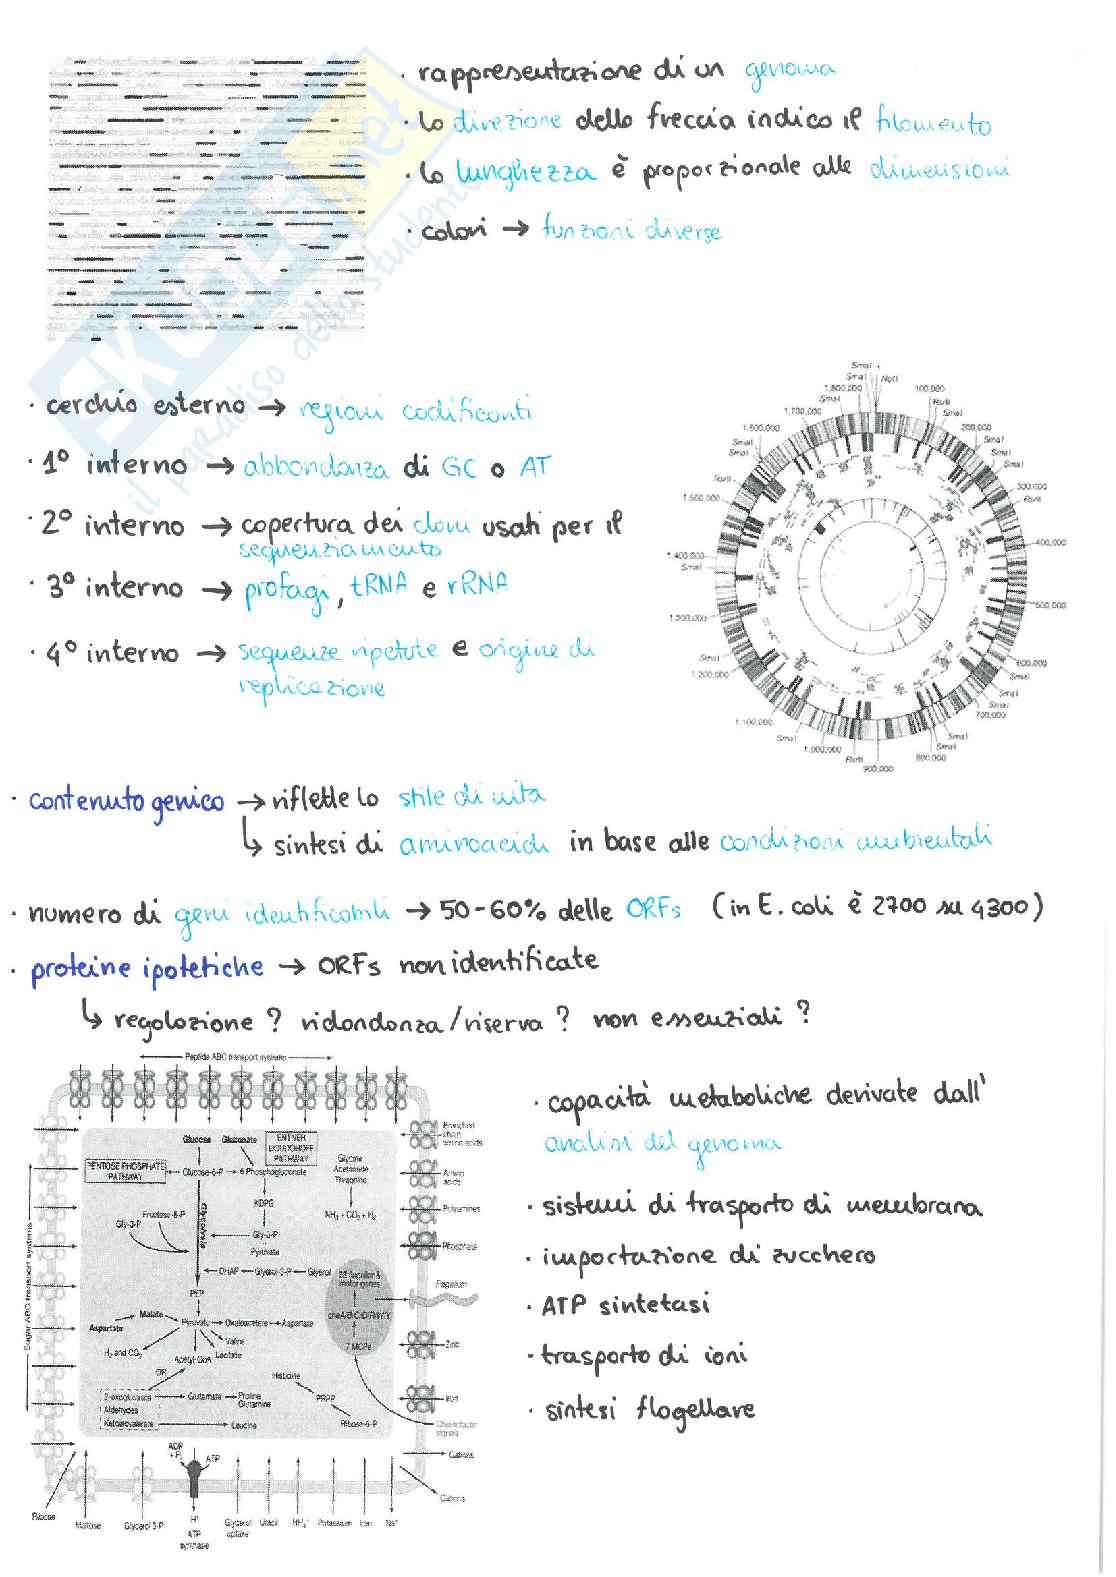 · rappresentazione di un genoma
· la direzione della freccia indica il filamento
· la lunghezza è proporzionale alle dimensioni
· colori → funzioni diverse
SKUOLA.net
il paradiso dello studente
· cerchio esterno → regioni codificanti
· 1° interno → abbondanza di GC o AT
· 2° interno → copertura dei cloni usati per il
sequenziamento
· 3° interno → profagi, tRNA e rRNA
· 4° interno → sequenze ripetute e origine di
replicazione
SmaI
SmaI
NotI
1,800,000
SmaI
1,700,000
1,600,000
SmaI
SmaI
RsrII
1,500,000
1,400,000
SmaI
SmaI
1,200,000
1,100,000
SmaI
1,000,000
RsrII
900,000
800,000
SmaI
SmaI
700,000
SmaI
SmaI
600,000
500,000
400,000
RsrII
300,000
SmaI
SmaI
200,000
SmaI
RsrII
100,000
· contenuto genico → riflette lo stile di vita
↳ sintesi di aminoacidi in base alle condizioni ambientali
· numero di geni identificabili → 50-60% delle ORFs (in E. coli è 2700 su 4300)
· proteine ipotetiche → ORFs non identificate
↳ regolazione ? ridondanza/riserva ? non essenziali ?
Peptide ABC transport systems
Sugar ABC transport systems
Branched
chain
amino acids
Amino
acids
Polyamines
Phosphate
Flagellum
Zinc
Iron
Chemotactic
signals
Cations
Cations
Glucose
Gluconate
ENTNER
DOUDOROFF
PATHWAY
PENTOSE PHOSPHATE
PATHWAY
Glucose-6-P
6 Phosphogluconate
Glycine
Acetamide
Threonine
KDPG
NH₃ + CO₂ + H₂
Fructose-6-P
Gly-3-P
Glycolysis
Gly-3-P
Pyruvate
DHAP
Glycerol-3-P
Glycerol
PEP
Malate
Aspartate
Pyruvate
Oxaloacetate
Aspartate
Valine
Lactate
H₂ and CO₂
Acetyl-CoA
OR
Histidine
2-oxoglutarate
Glutamate
Proline
Glutamine
Aldehydes
Ketoisovalerate
Leucine
PPPP
Ribose-5-P
7 MCPs
ADP
+ Pi
ATP
Ribose
Maltose
Glycerol 3-P
H⁺
ATP
synthase
Glycerol
uptake
Uracil
NH₄⁺
Potassium
Iron
Na⁺
· capacità metaboliche derivate dall'
analisi del genoma
· sistemi di trasporto di membrana
· importazione di zucchero
· ATP sintetasi
· trasporto di ioni
· sintesi flagellare